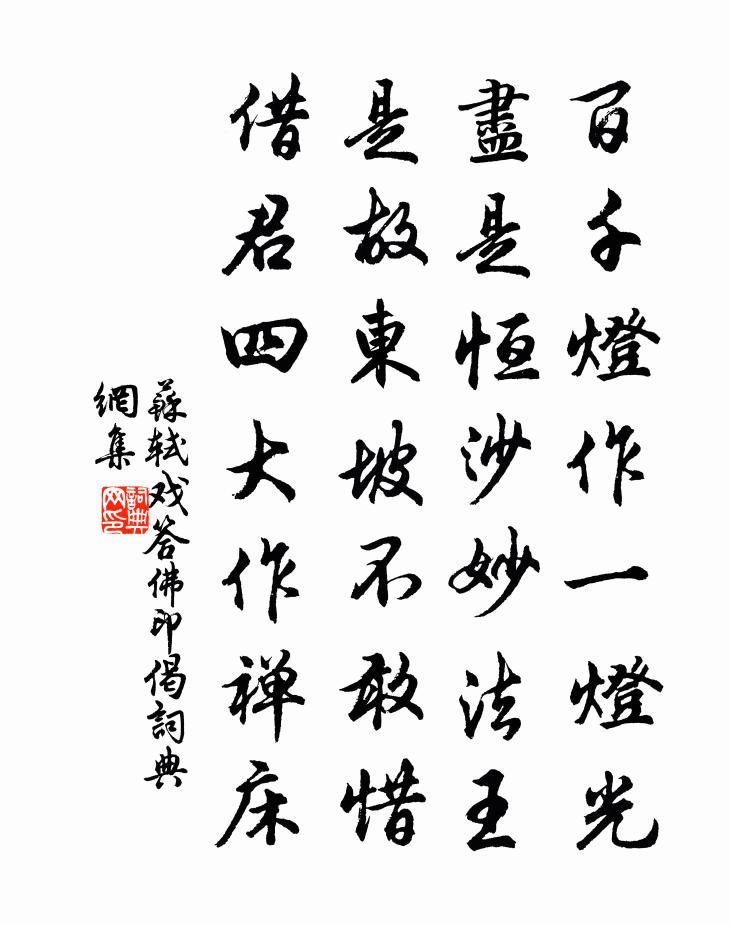 百千燈作一燈光
盡是恒沙妙法王
是故東坡不敢惜
借君四大作禅床
蘇轼戏答佛印偈詞典
網集
詞典
网印